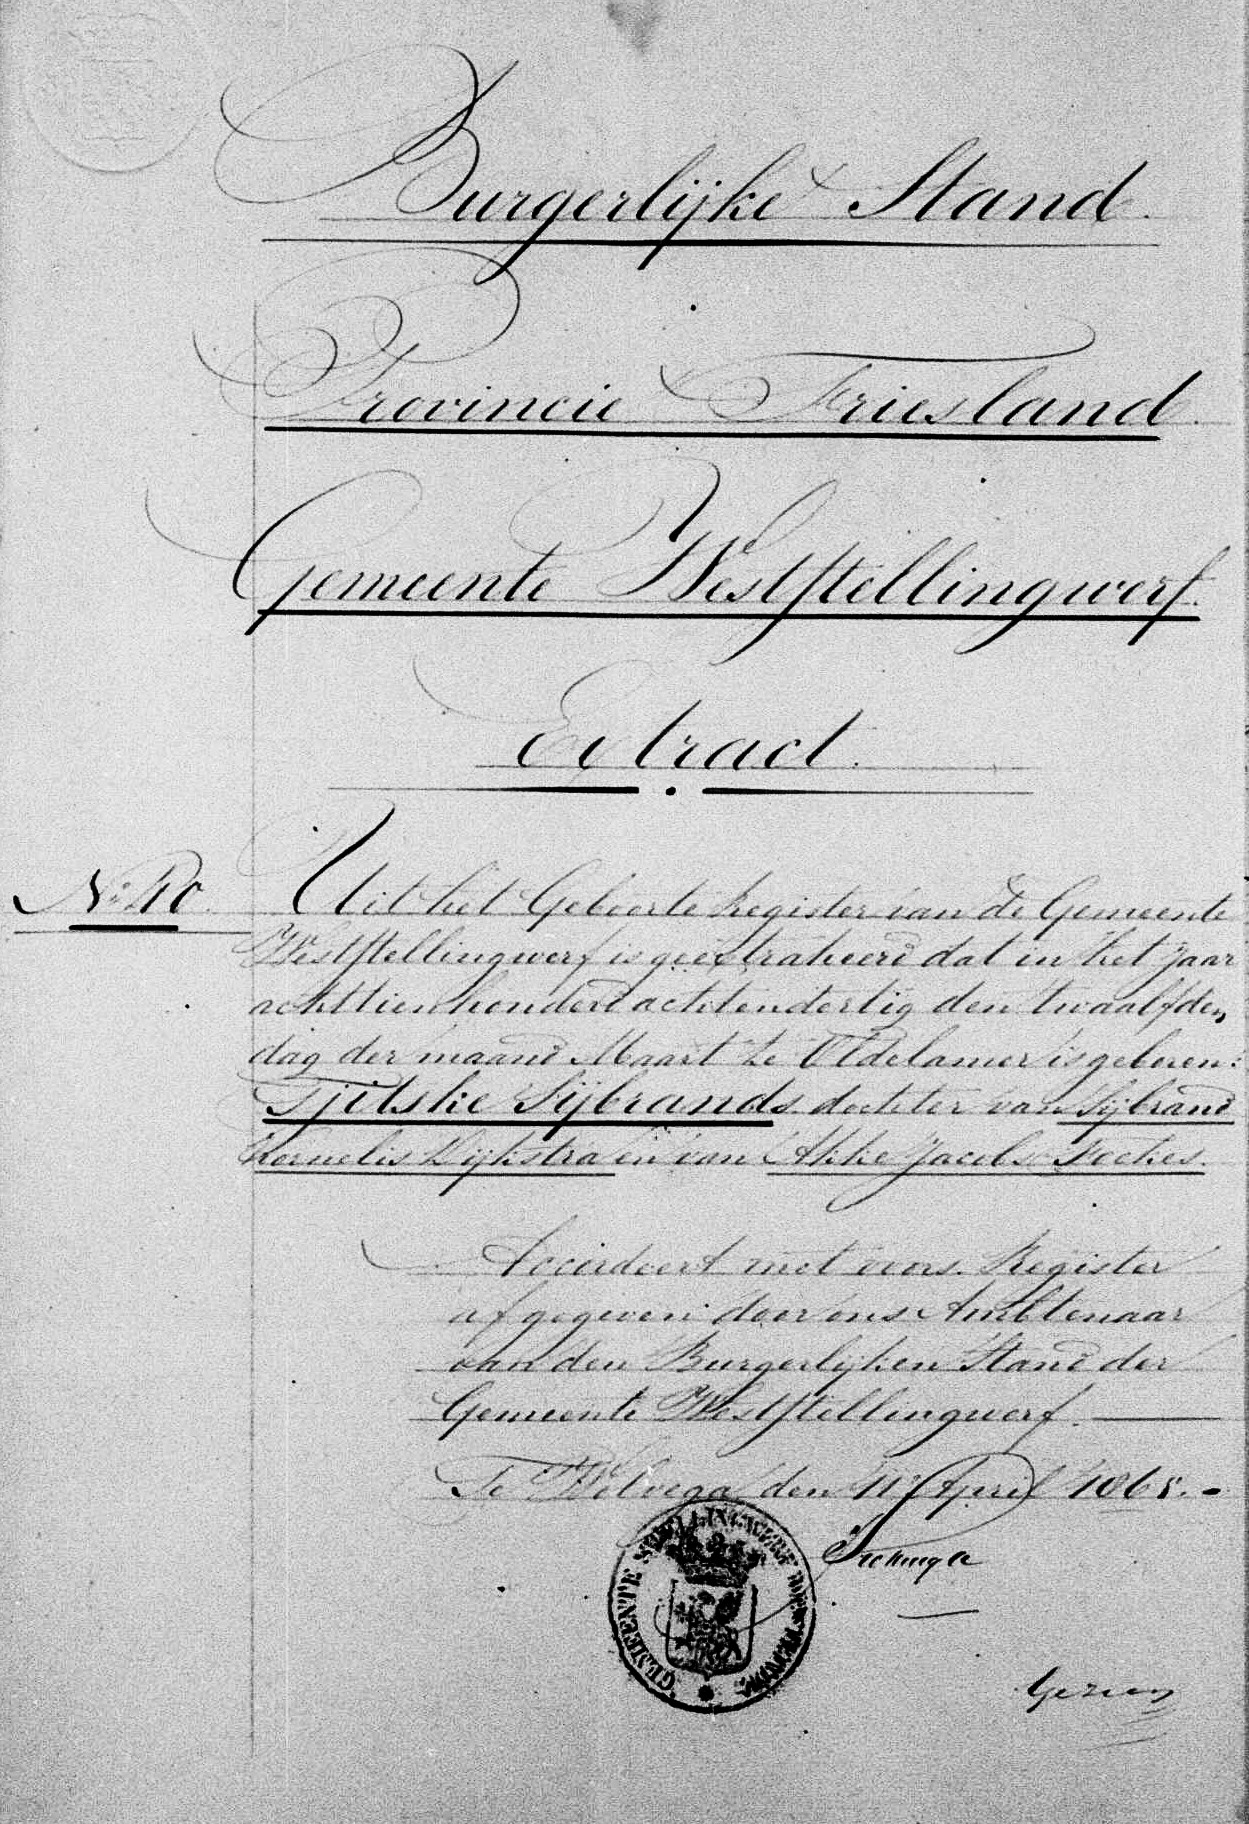 Burgerlijke Stand.
Provincie Friesland.
Gemeente Weststellingwerf.
Extract.
No: 40.
Uit het Geboorte Register van de Gemeente
Weststellingwerf is geextraheerd dat in het Jaar
achttienhonderd achtendertig den twaalfden
dag der maand Maart te Oldelamer is geboren:
Tjitske Sijbrands dochter van Sijbrand
Kornelis Dijkstra en van Akke Jacobs Fockes.
Accordeert met voors. Register
afgegeven door ons Ambtenaar
van den Burgerlijken Stand der
Gemeente Weststellingwerf.
Te Wolvega den 11 April 1865.-
GEMEENTE STELLINGWERF
Gezien